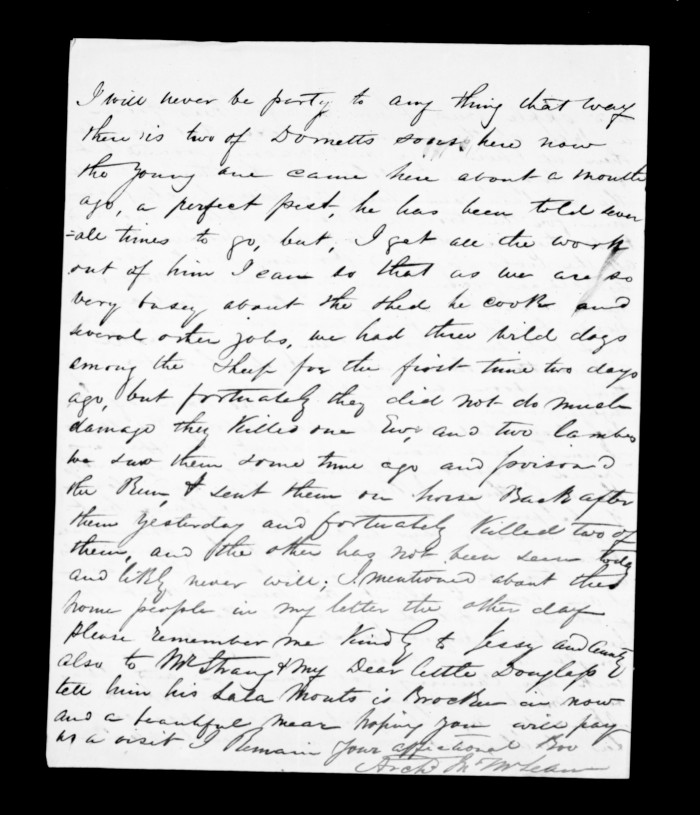 I will never be party to any thing that way
there is two of Dornetts sons here now
the young one came here about a month
ago, a perfect pest, he has been told sever
=ale times to go, but, I get all the work
out of him I can so that as we are so
very busey about the shed he cook and
several other jobs, we had three wild dogs
among the Sheep for the first time two days
ago, but fortunately they did not do much
damage they Killed one Ewe, and two lambes
we saw them some time ago and poison'd
the Run, & sent them on horse Back after
them yesterday and fortunately Killed two of
them, and the other has not been seen today
and likly never will; I mentioned about the
home people in my letter the other day
Please remember me Kindly to Jessy and Aunty
also to Mr Strang & My Dear little Douglass
tell him his Lala Monts is Brocken in now
and a beautiful mear hoping you will pay
us a visit I Remain your affectionat Bro
Archd Jn McLean